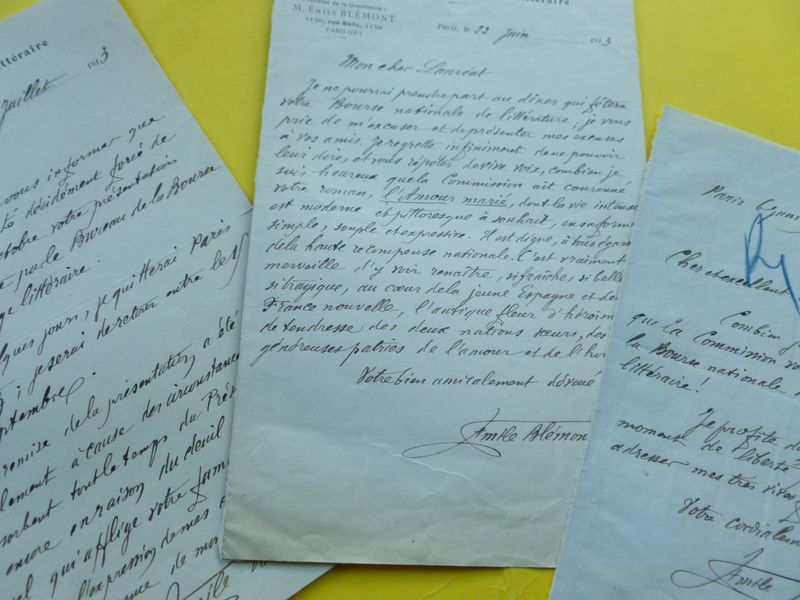 ttéraire
juillet 1913
vous informer que
été décidément forcé de
octobre votre présentation
par le Bureau de la Bourse
littéraire.
jours, je quitterai Paris
; je serai de retour entre le 15
septembre.
remise de la présentation a été
à cause des circonstances
absorbent tout le temps du Prés
encore en raison du deuil
qui afflige votre fami
l'expression de mes
de mor
M. ÉMILE BLÉMONT
PARIS (IXe)
Paris, le 22 Juin 1913
Mon cher Laurent
Je ne pourrai prendre part au dîner qui fêtera
votre Bourse nationale de littérature ; je vous
prie de m'excuser et de présenter mes excuses
à vos amis. Je regrette infiniment de ne pouvoir
leur dire, et vous répéter de vive voix, combien je
suis heureux que la Commission ait couronné
votre roman, l'Amour marié, dont la vie intense
est moderne et pittoresque à souhait, en sa forme
simple, souple et expressive. Il est digne, à tous égards
de la haute récompense nationale. C'est vraiment
merveille d'y voir renaître, si fraîche, si belle
si tragique, au cœur de la jeune Espagne et de
France nouvelle, l'antique fleur d'héroïsm
de tendresse des deux nations sœurs, des
généreuses patries de l'amour et de l'hon
Votre bien amicalement dévoué
Emile Blémon
littéraire
Paris
Cher et excellent
Combien
que la Commission vo
la Bourse nationale
littéraire !
Je profite de
moment de liberté
adresser mes très vives
Votre cordialem
Emile